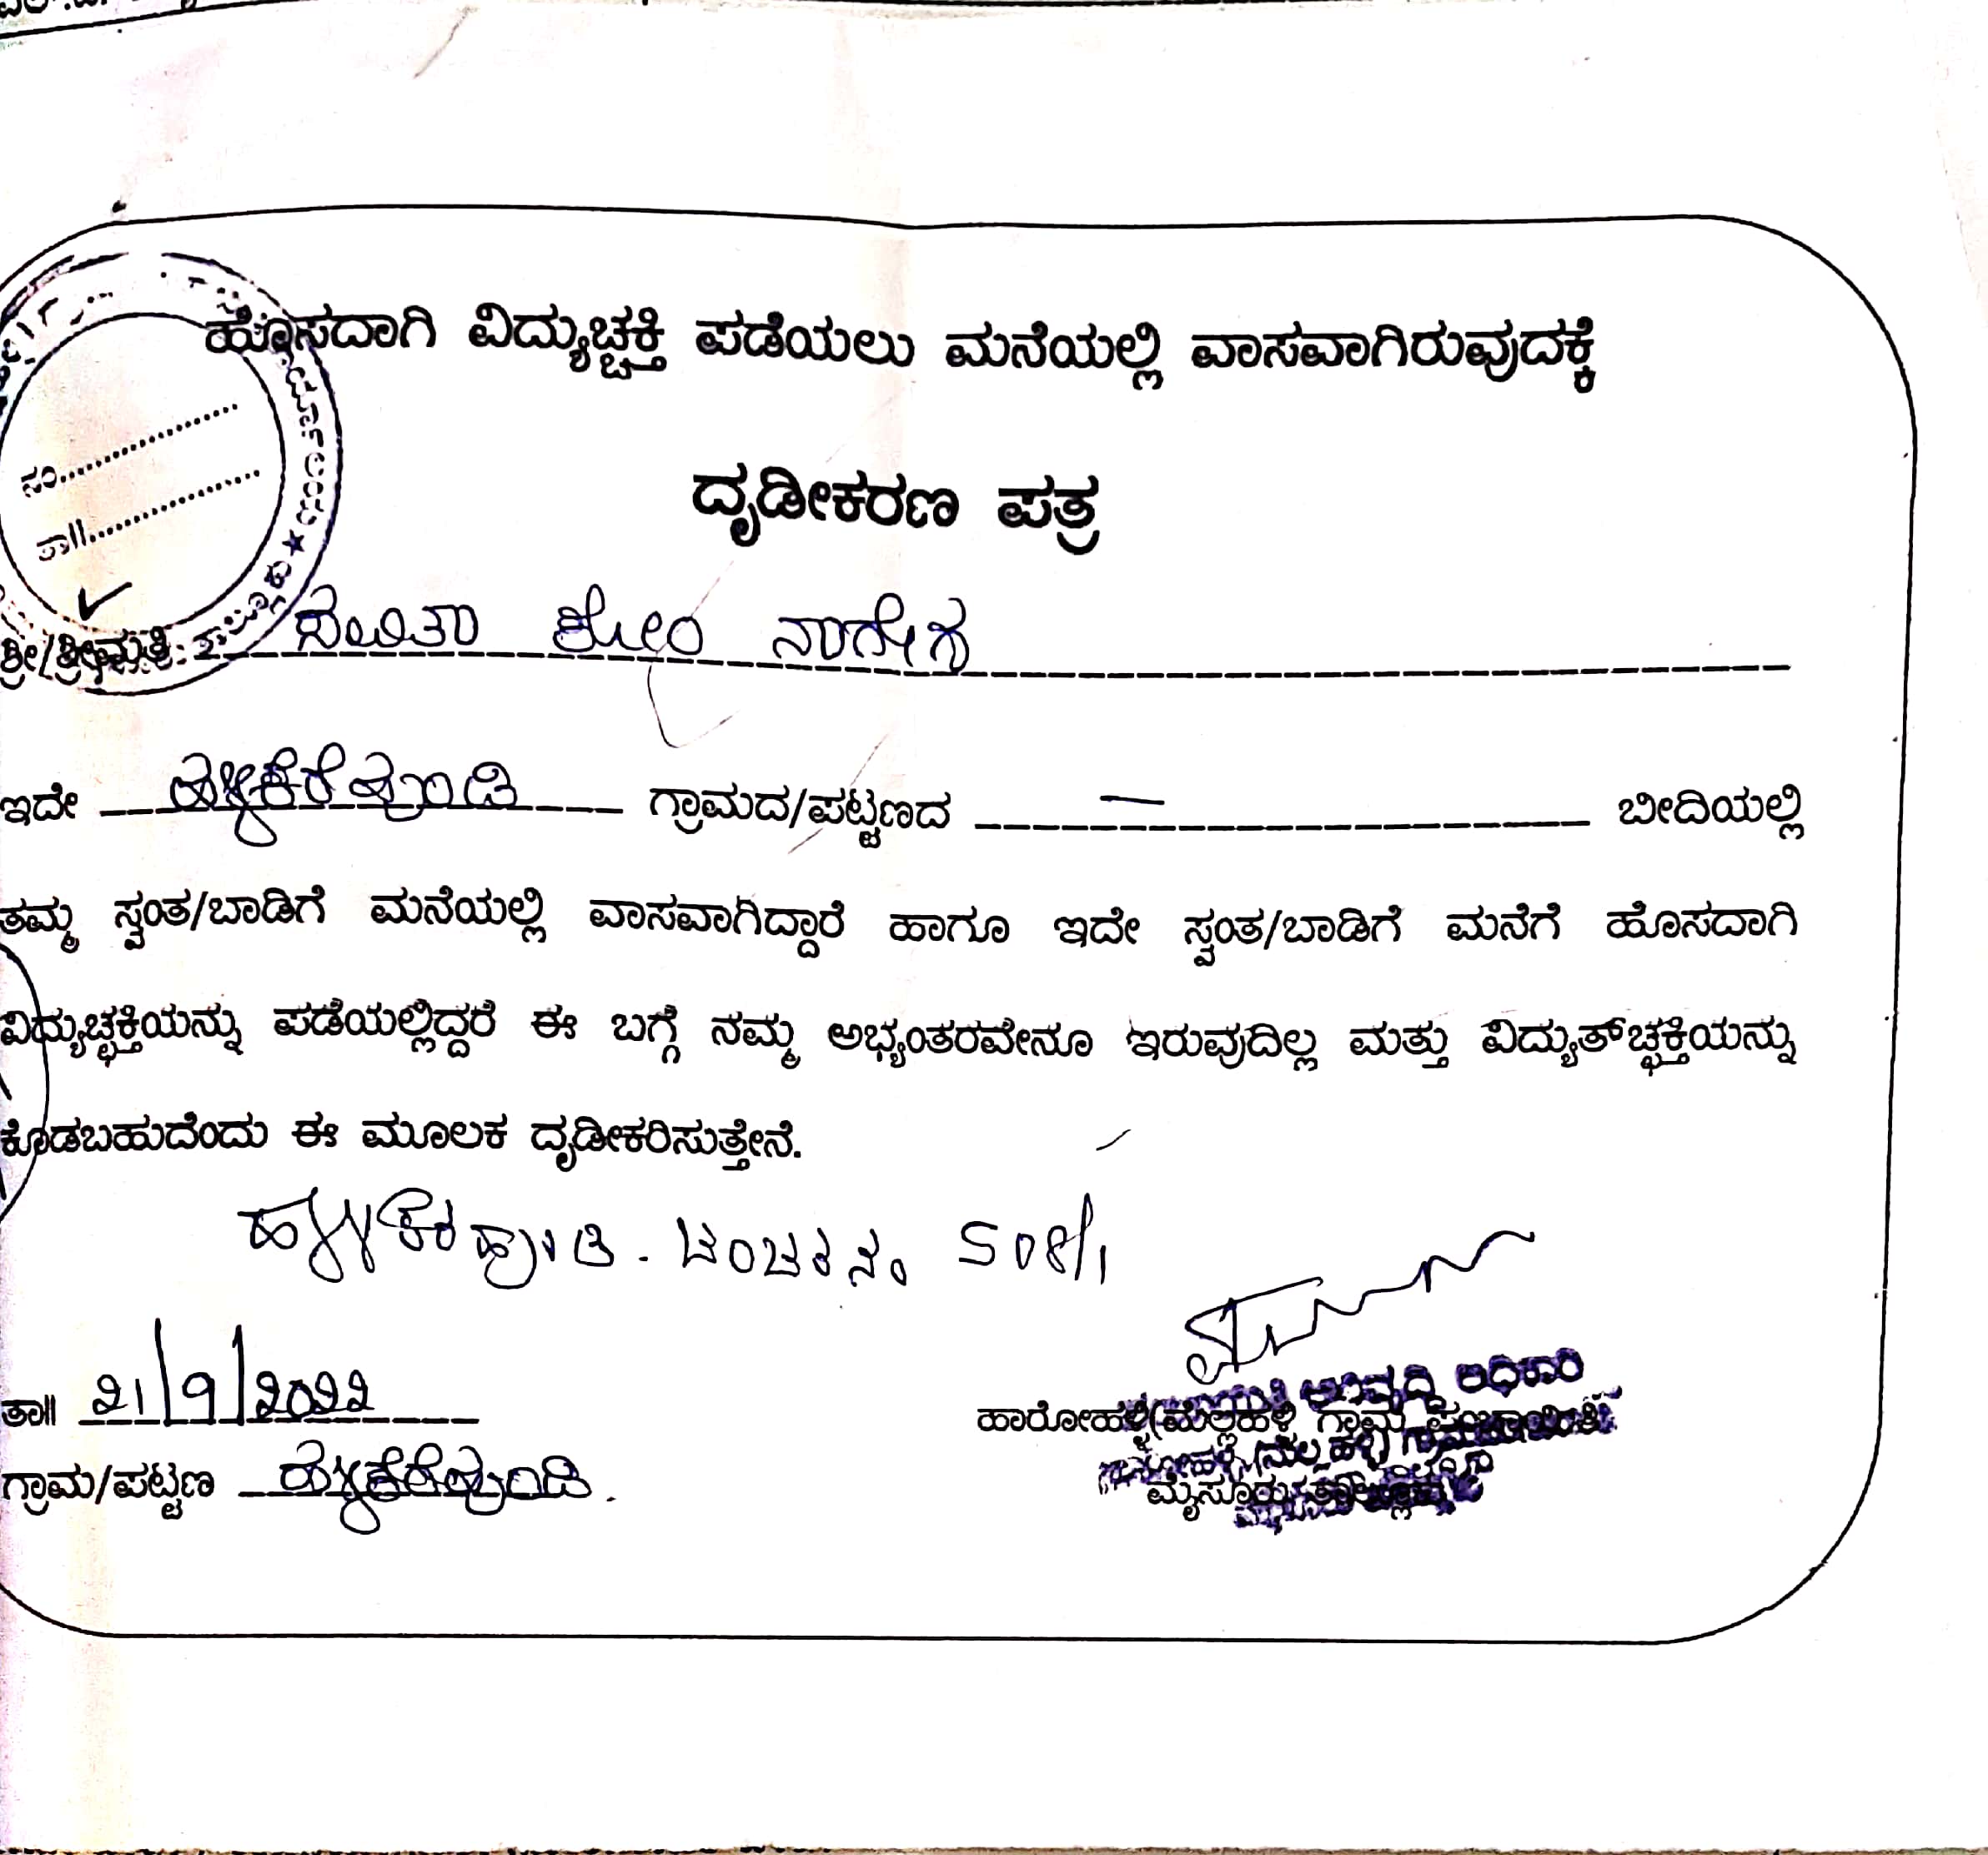 ಹೊಸದಾಗಿ ವಿದ್ಯುಚ್ಚಕ್ತಿ ಪಡೆಯಲು ಮನೆಯಲ್ಲಿ ವಾಸವಾಗಿರುವುದಕ್ಕೆ
ದೃಡೀಕರಣ ಪತ್ರ
ನಂ..................
ತಾ||..................
ಶ್ರೀ/ಶ್ರೀಮತಿ: ಕೋಂ ನಾಗೇಶ
ಇದೇ ಹಳ್ಳಿಕೆರೆಹುಂಡಿ ಗ್ರಾಮದ/ಪಟ್ಟಣದ — ಬೀದಿಯಲ್ಲಿ
ತಮ್ಮ ಸ್ವಂತ/ಬಾಡಿಗೆ ಮನೆಯಲ್ಲಿ ವಾಸವಾಗಿದ್ದಾರೆ ಹಾಗೂ ಇದೇ ಸ್ವಂತ/ಬಾಡಿಗೆ ಮನೆಗೆ ಹೊಸದಾಗಿ
ವಿದ್ಯುಚ್ಛಕ್ತಿಯನ್ನು ಪಡೆಯಲ್ಲಿದ್ದರೆ ಈ ಬಗ್ಗೆ ನಮ್ಮ ಅಭ್ಯಂತರವೇನೂ ಇರುವುದಿಲ್ಲ ಮತ್ತು ವಿದ್ಯುತ್‌ಚ್ಛಕ್ತಿಯನ್ನು
ಕೊಡಬಹುದೆಂದು ಈ ಮೂಲಕ ದೃಡೀಕರಿಸುತ್ತೇನೆ.
ತಾ|| ೨೧/೨/೨೦೨೨
ಹಾರೋಹಳ್ಳಿ(ಮೆಲ್ಲಹಳ್ಳಿ) ಗ್ರಾಮ ಪಂಚಾಯಿತಿ
ಗ್ರಾಮ/ಪಟ್ಟಣ ಹಳ್ಳಿಕೆರೆಹುಂಡಿ.
ಮೈಸೂರು ತಾಲ್ಲೂಕು